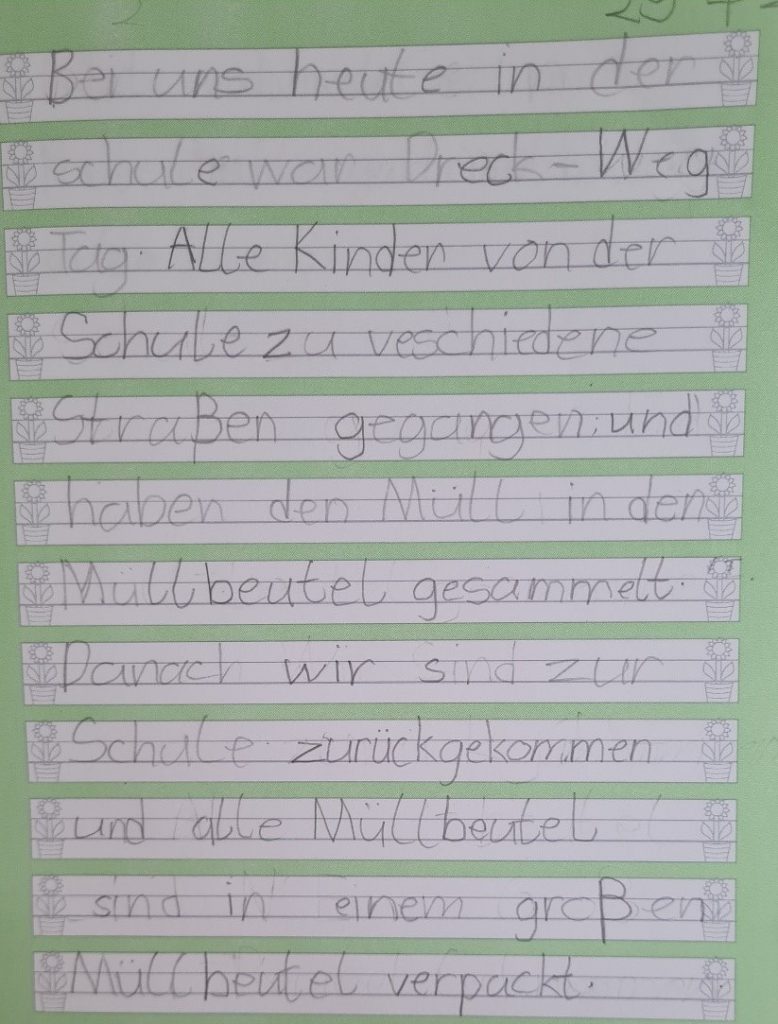 Bei uns heute in der
schule war Dreck-Weg
Tag. Alle Kinder von der
Schule zu veschiedene
Straßen gegangen und
haben den Müll in den
Müllbeutel gesammelt.
Danach wir sind zur
Schule zurückgekommen
und alle Müllbeutel
sind in einem großen
Müllbeutel verpackt.